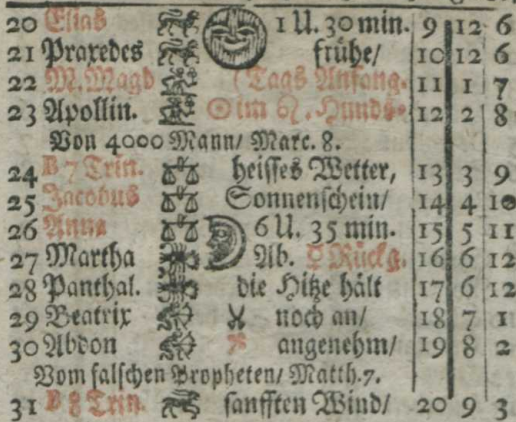 20 Elias 1 U. 30 min. 9 12 6
21 Praxedes frühe/ 10 12 6
22 M. Magd (Tags Anfang. 11 1 7
23 Apollin. ☉ im ♌. Hunds- 12 2 8
Von 4000 Mann/ Marc. 8.
24 B 7 Trin. heisses Wetter, 13 3 9
25 Jacobus Sonnenschein/ 14 4 10
26 Anna 6 U. 35 min. 15 5 11
27 Martha Ab. ☿ Rückg. 16 6 12
28 Panthal. die Hitze hält 17 6 12
29 Beatrix noch an/ 18 7 1
30 Abdon angenehm/ 19 8 2
Vom falschen Propheten/ Matth. 7.
31 B 8 Trin. sanfften Wind/ 20 9 3